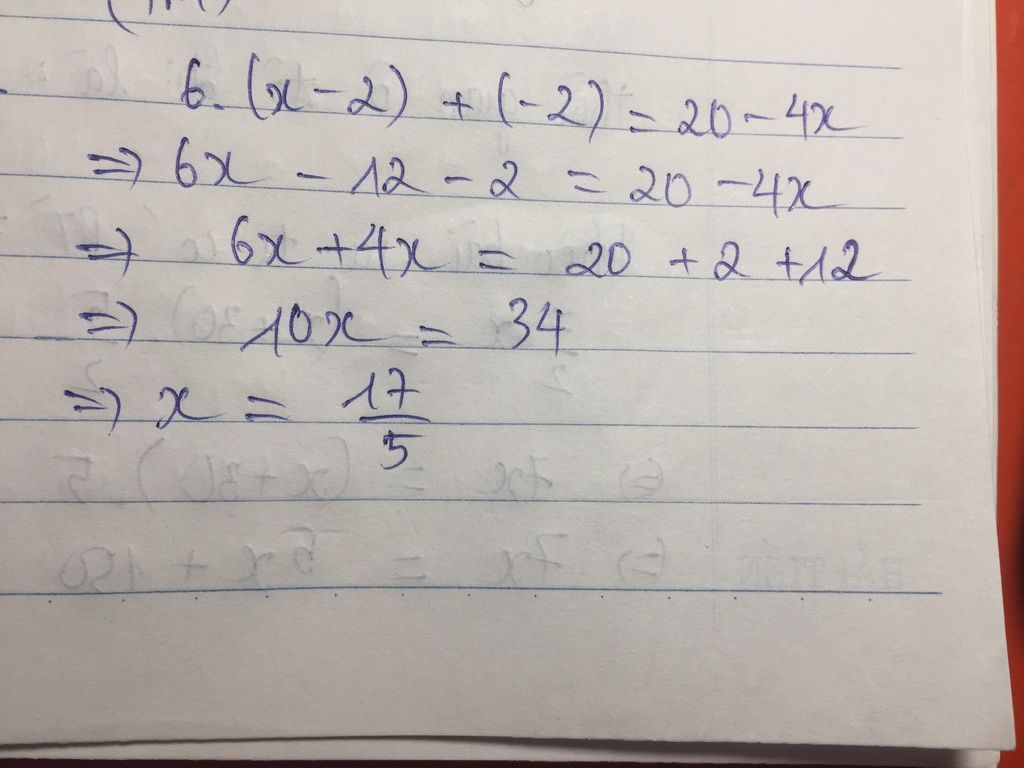 6. (x - 2) + (-2) = 20 - 4x
=> 6x - 12 - 2 = 20 - 4x
=> 6x + 4x = 20 + 2 + 12
=> 10x = 34
=> x = 17/5